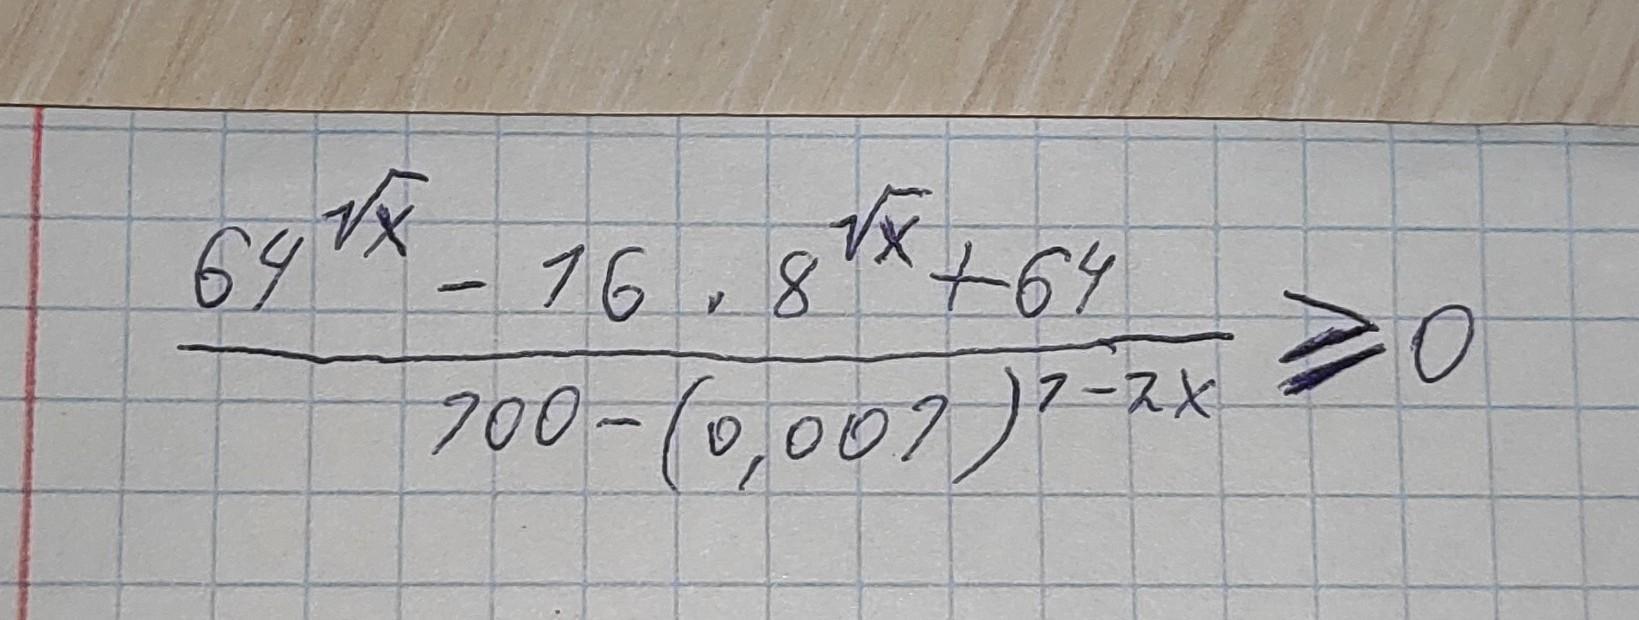 64^√x - 16 · 8^√x + 64
100 - (0,001)^1-2x
≥ 0